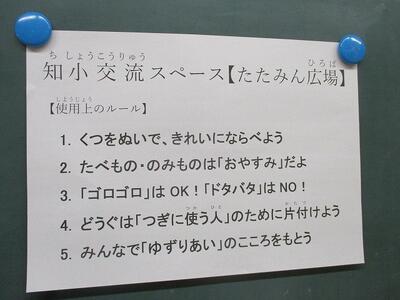 ち しょうこうりゅう ひろば
知小交流スペース【たたみん広場】
しようじょう
【使用上のルール】
1. くつをぬいで、きれいにならべよう
2. たべもの・のみものは「おやすみ」だよ
3. 「ゴロゴロ」はOK!「ドタバタ」はNO!
つか ひと かたづ
4. どうぐは「つぎに使う人」のために片付けよう
5. みんなで「ゆずりあい」のこころをもとう